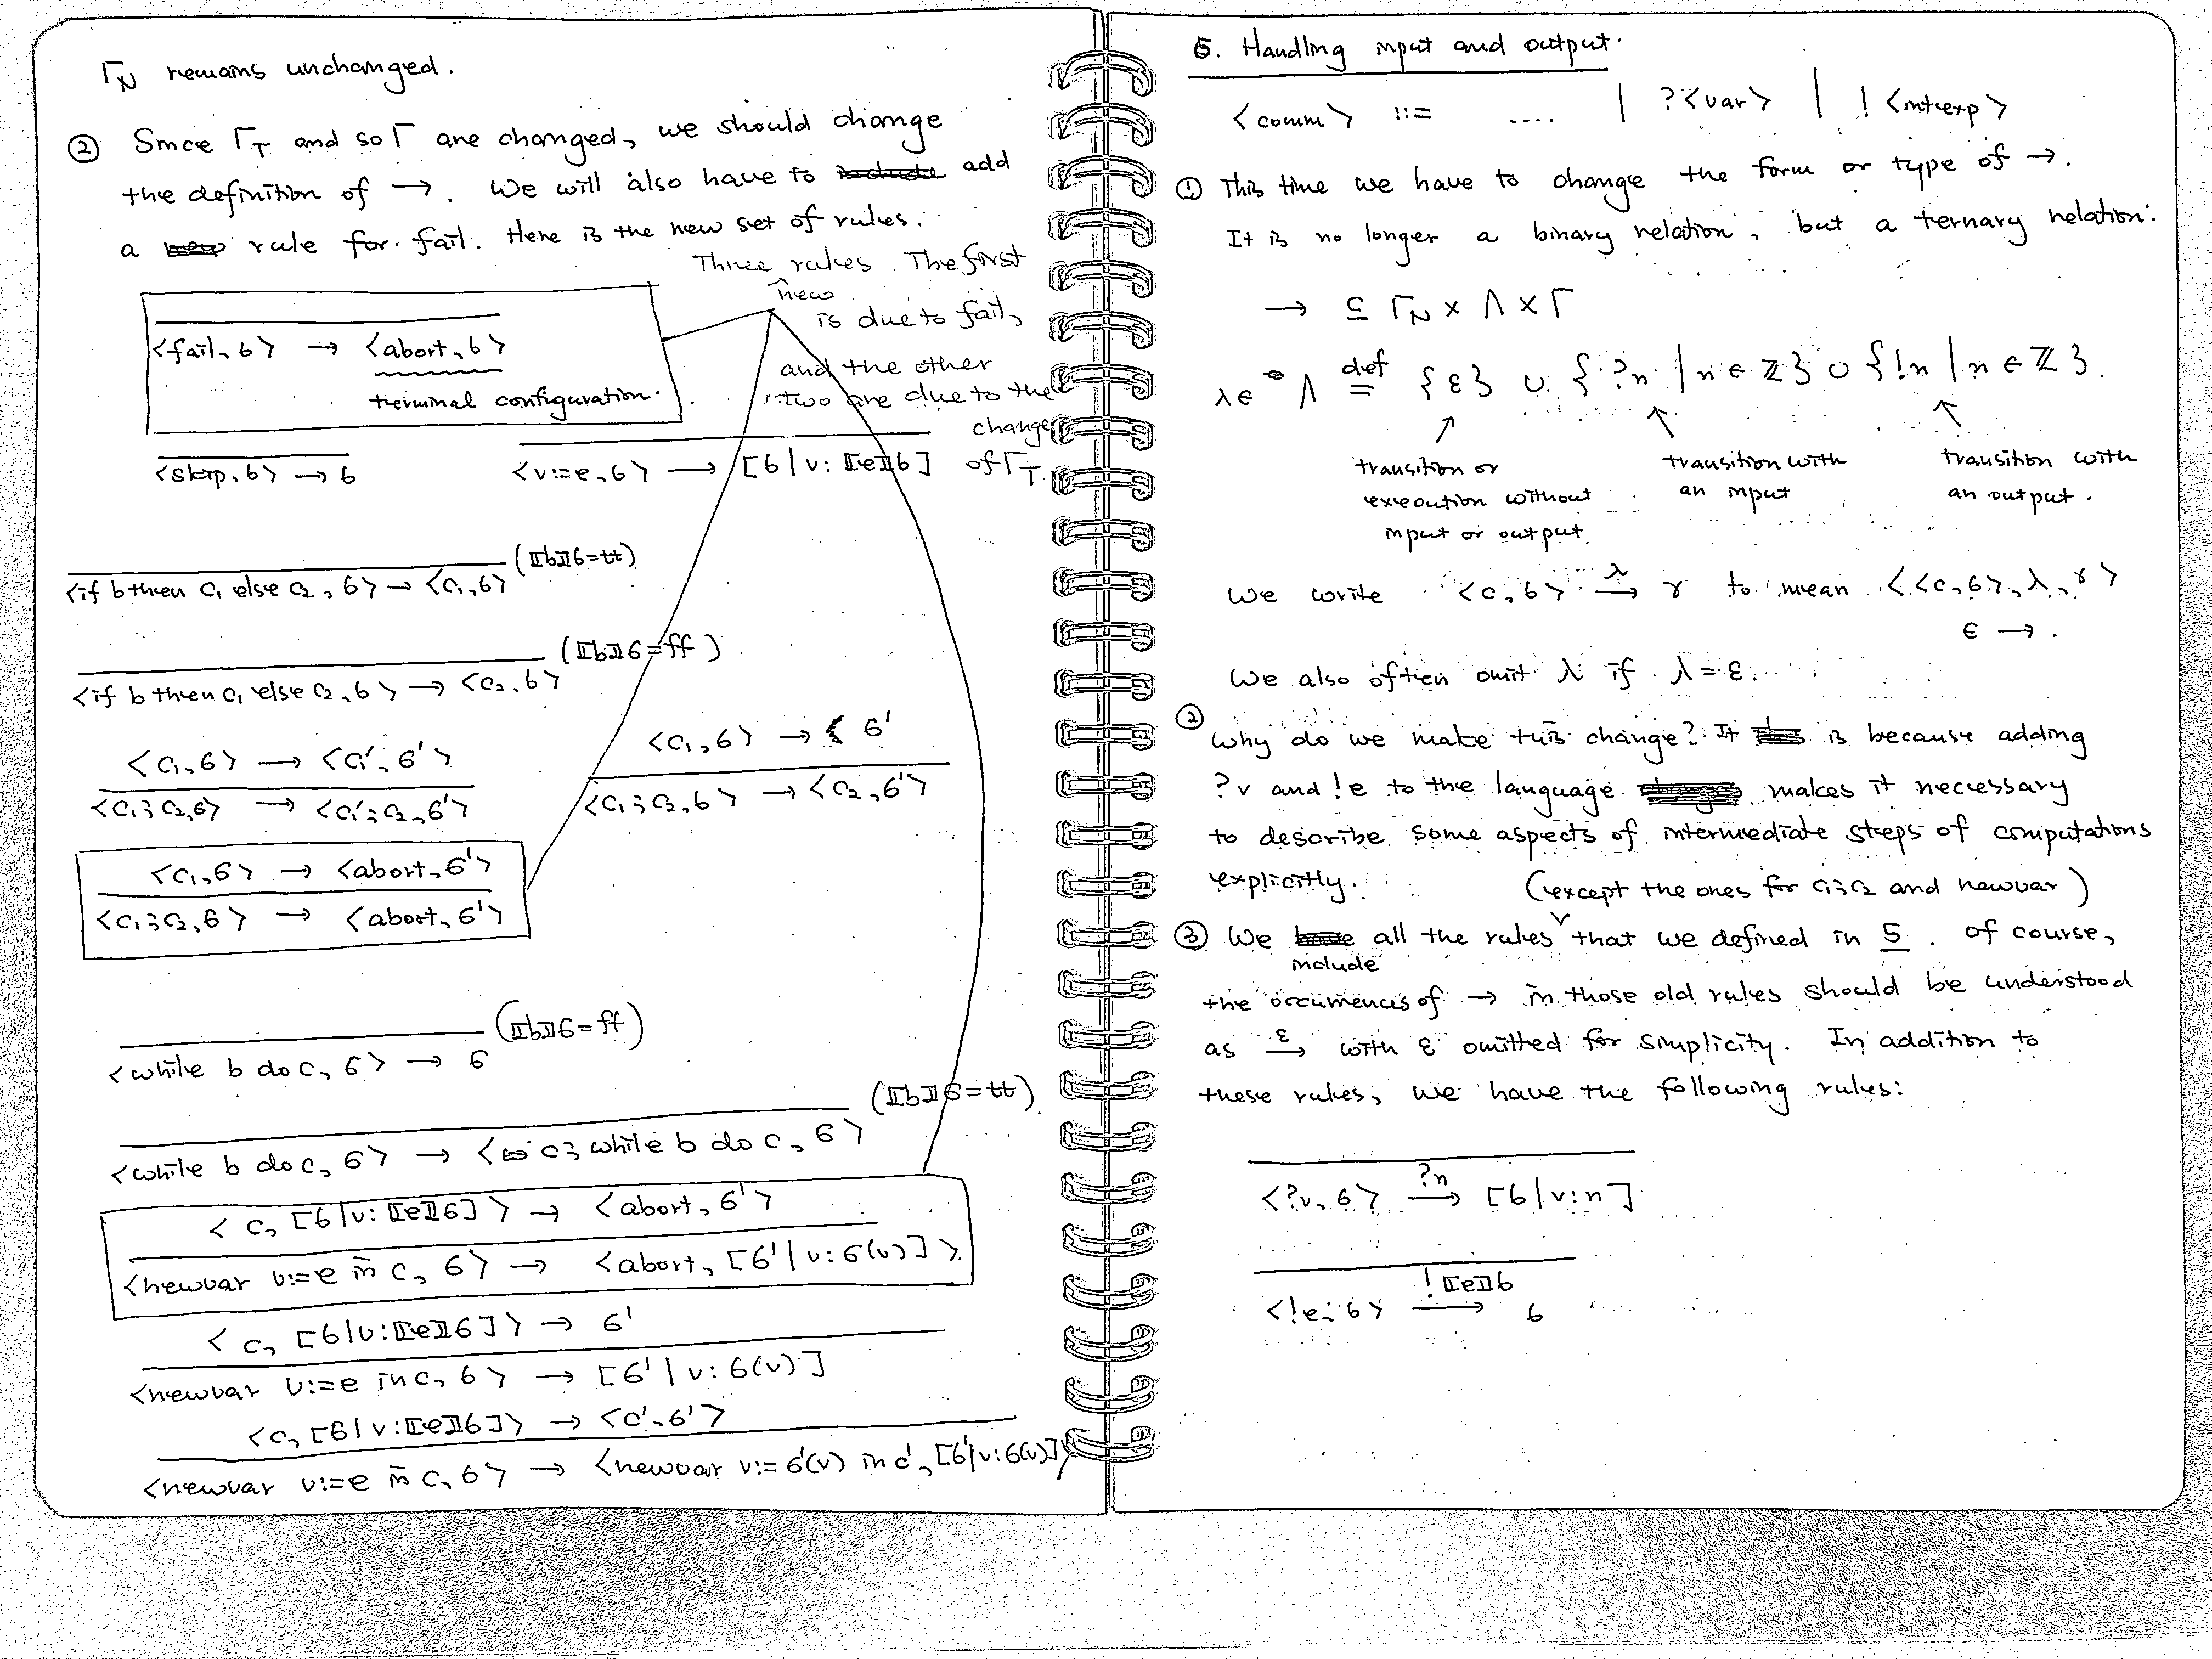 Γ_N remains unchanged.
② Since Γ_T and so Γ are changed, we should change
the definition of →. We will also have to add
a rule for fail. Here is the new set of rules.
Three new rules. The first
is due to fail,
and the other
two are due to the
change
of Γ_T.
<fail, σ> → <abort, σ>
terminal configuration.
<skip, σ> → σ
<v:=e, σ> → [σ | v: ⟦e⟧σ]
(⟦b⟧σ=tt)
<if b then c₁ else c₂, σ> → <c₁, σ>
(⟦b⟧σ=ff)
<if b then c₁ else c₂, σ> → <c₂, σ>
<c₁, σ> → <c₁', σ'>
<c₁; c₂, σ> → <c₁'; c₂, σ'>
<c₁, σ> → σ'
<c₁; c₂, σ> → <c₂, σ'>
<c₁, σ> → <abort, σ'>
<c₁; c₂, σ> → <abort, σ'>
(⟦b⟧σ=ff)
<while b do c, σ> → σ
(⟦b⟧σ=tt)
<while b do c, σ> → <c; while b do c, σ>
<c, [σ | v: ⟦e⟧σ]> → <abort, σ'>
<newvar v:=e in c, σ> → <abort, [σ' | v: σ(v)]>.
<c, [σ | v: ⟦e⟧σ]> → σ'
<newvar v:=e in c, σ> → [σ' | v: σ(v)]
<c, [σ | v: ⟦e⟧σ]> → <c', σ'>
<newvar v:=e in c, σ> → <newvar v:= σ'(v) in c', [σ' | v: σ(v)]>
6. Handling input and output.
<comm> ::= .... | ?<var> | !<intexp>
① This time we have to change the form or type of →.
It is no longer a binary relation, but a ternary relation.
→ ⊆ Γ_N × Λ × Γ
λ ∈ Λ def= {ε} ∪ {?n | n ∈ ℤ} ∪ {!n | n ∈ ℤ}.
transition or
execution without
input or output.
transition with
an input
transition with
an output.
We write <c, σ> →^λ γ to mean <<c, σ>, λ, γ>
∈ →.
We also often omit λ if λ = ε.
② Why do we make this change? It is because adding
?v and !e to the language makes it necessary
to describe some aspects of intermediate steps of computations
explicitly.
(except the ones for c₁; c₂ and newvar)
③ We include all the rules that we defined in 5. Of course,
the occurrences of → in those old rules should be understood
as →^ε with ε omitted for simplicity. In addition to
these rules, we have the following rules:
<?v, σ> →^?n [σ | v: n]
<!e, σ> →^!⟦e⟧σ σ